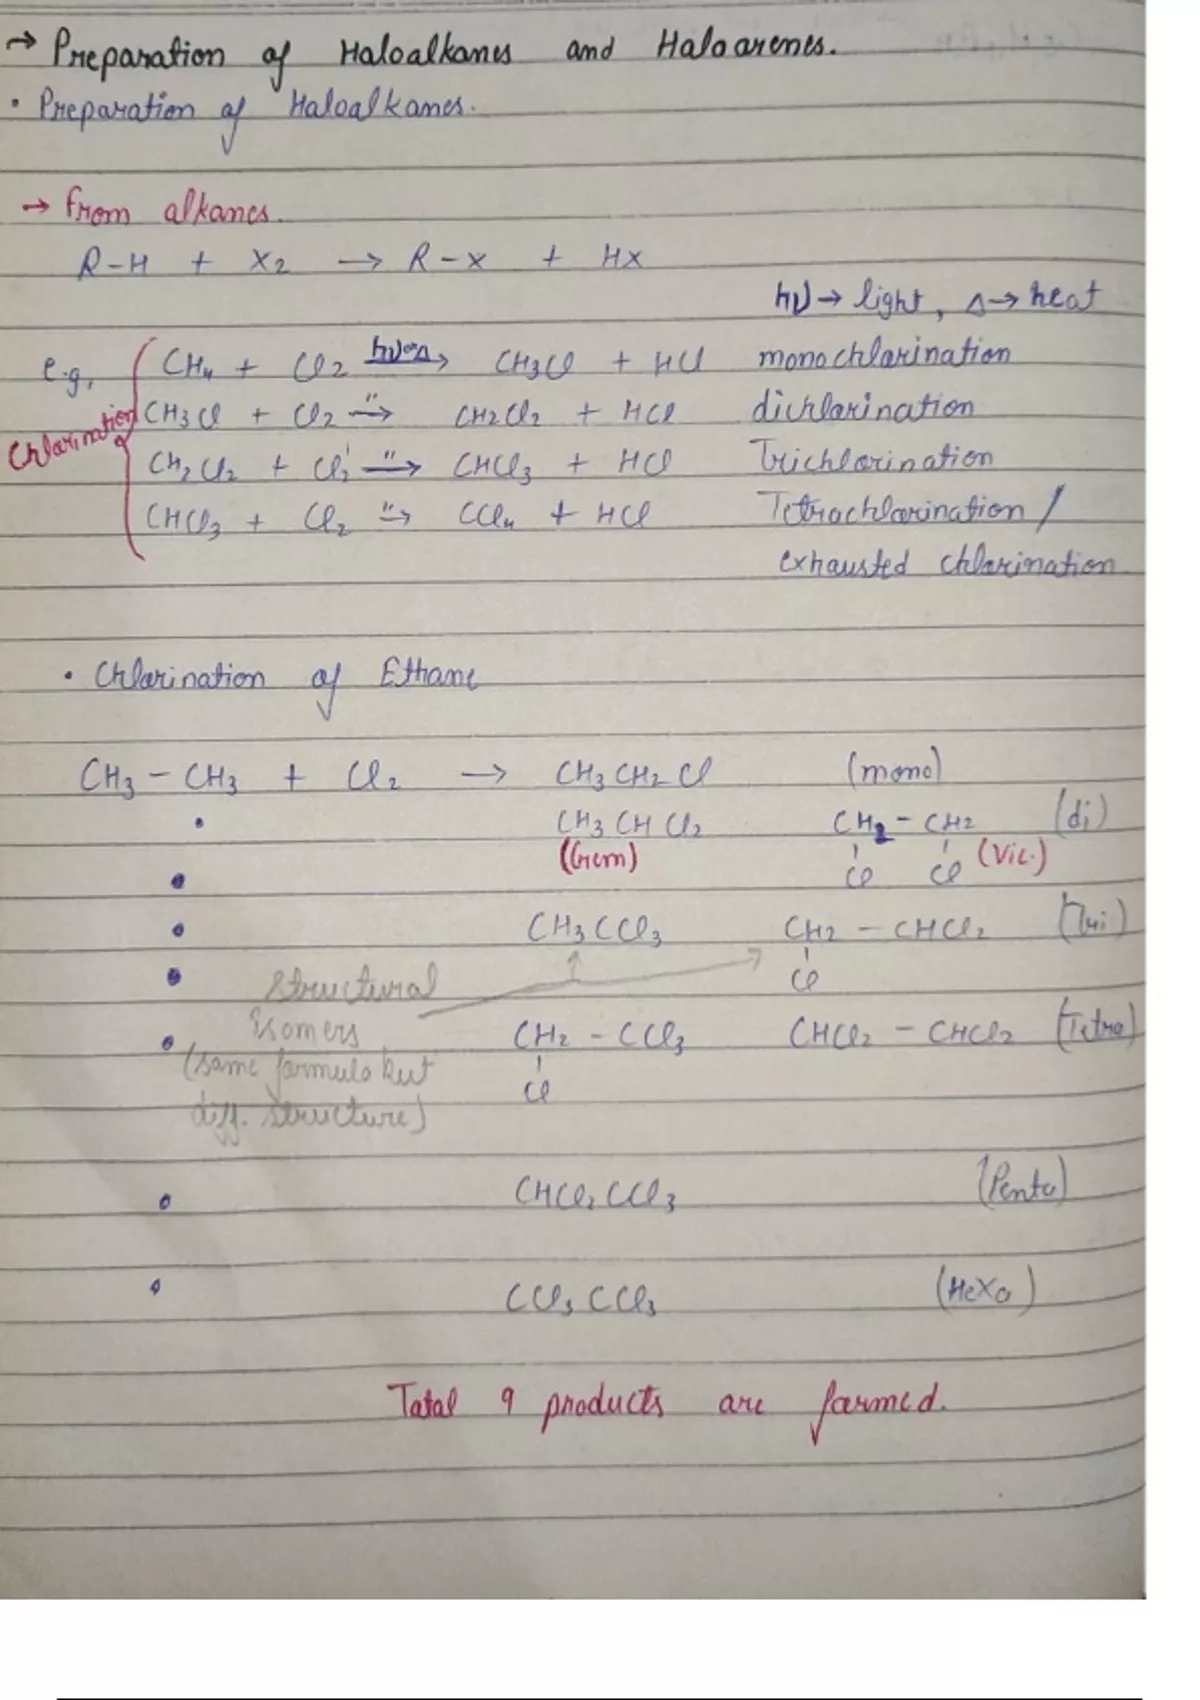 → Preparation of Haloalkanes and Haloarenes.
• Preparation of Haloalkanes.
→ from alkanes.
R-H + X2 → R-X + HX
hν → light, Δ → heat
e.g, CH4 + Cl2 hν or Δ → CH3Cl + HCl monochlorination
Chlorination CH3Cl + Cl2 " → CH2Cl2 + HCl dichlorination
CH2Cl2 + Cl2 " → CHCl3 + HCl Trichlorination
CHCl3 + Cl2 " → CCl4 + HCl Tetrachlorination /
exhausted chlorination
• Chlorination of Ethane
CH3 - CH3 + Cl2 → CH3CH2Cl (mono)
• CH3CHCl2 CH2 - CH2 (di)
(Gem) Cl Cl (Vic.)
• CH3CCl3 CH2 - CHCl2 (Tri)
Cl
Structural
Isomers
(same formula but
diff. structure)
• CH2 - CCl3 CHCl2 - CHCl2 (Tetra)
Cl
• CHCl2CCl3 (Penta)
• CCl3CCl3 (Hexa)
Total 9 products are formed.